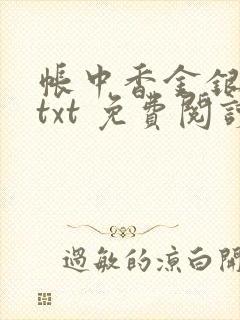 帳中香金銀
txt 免費閱讀
過敏的涼白開